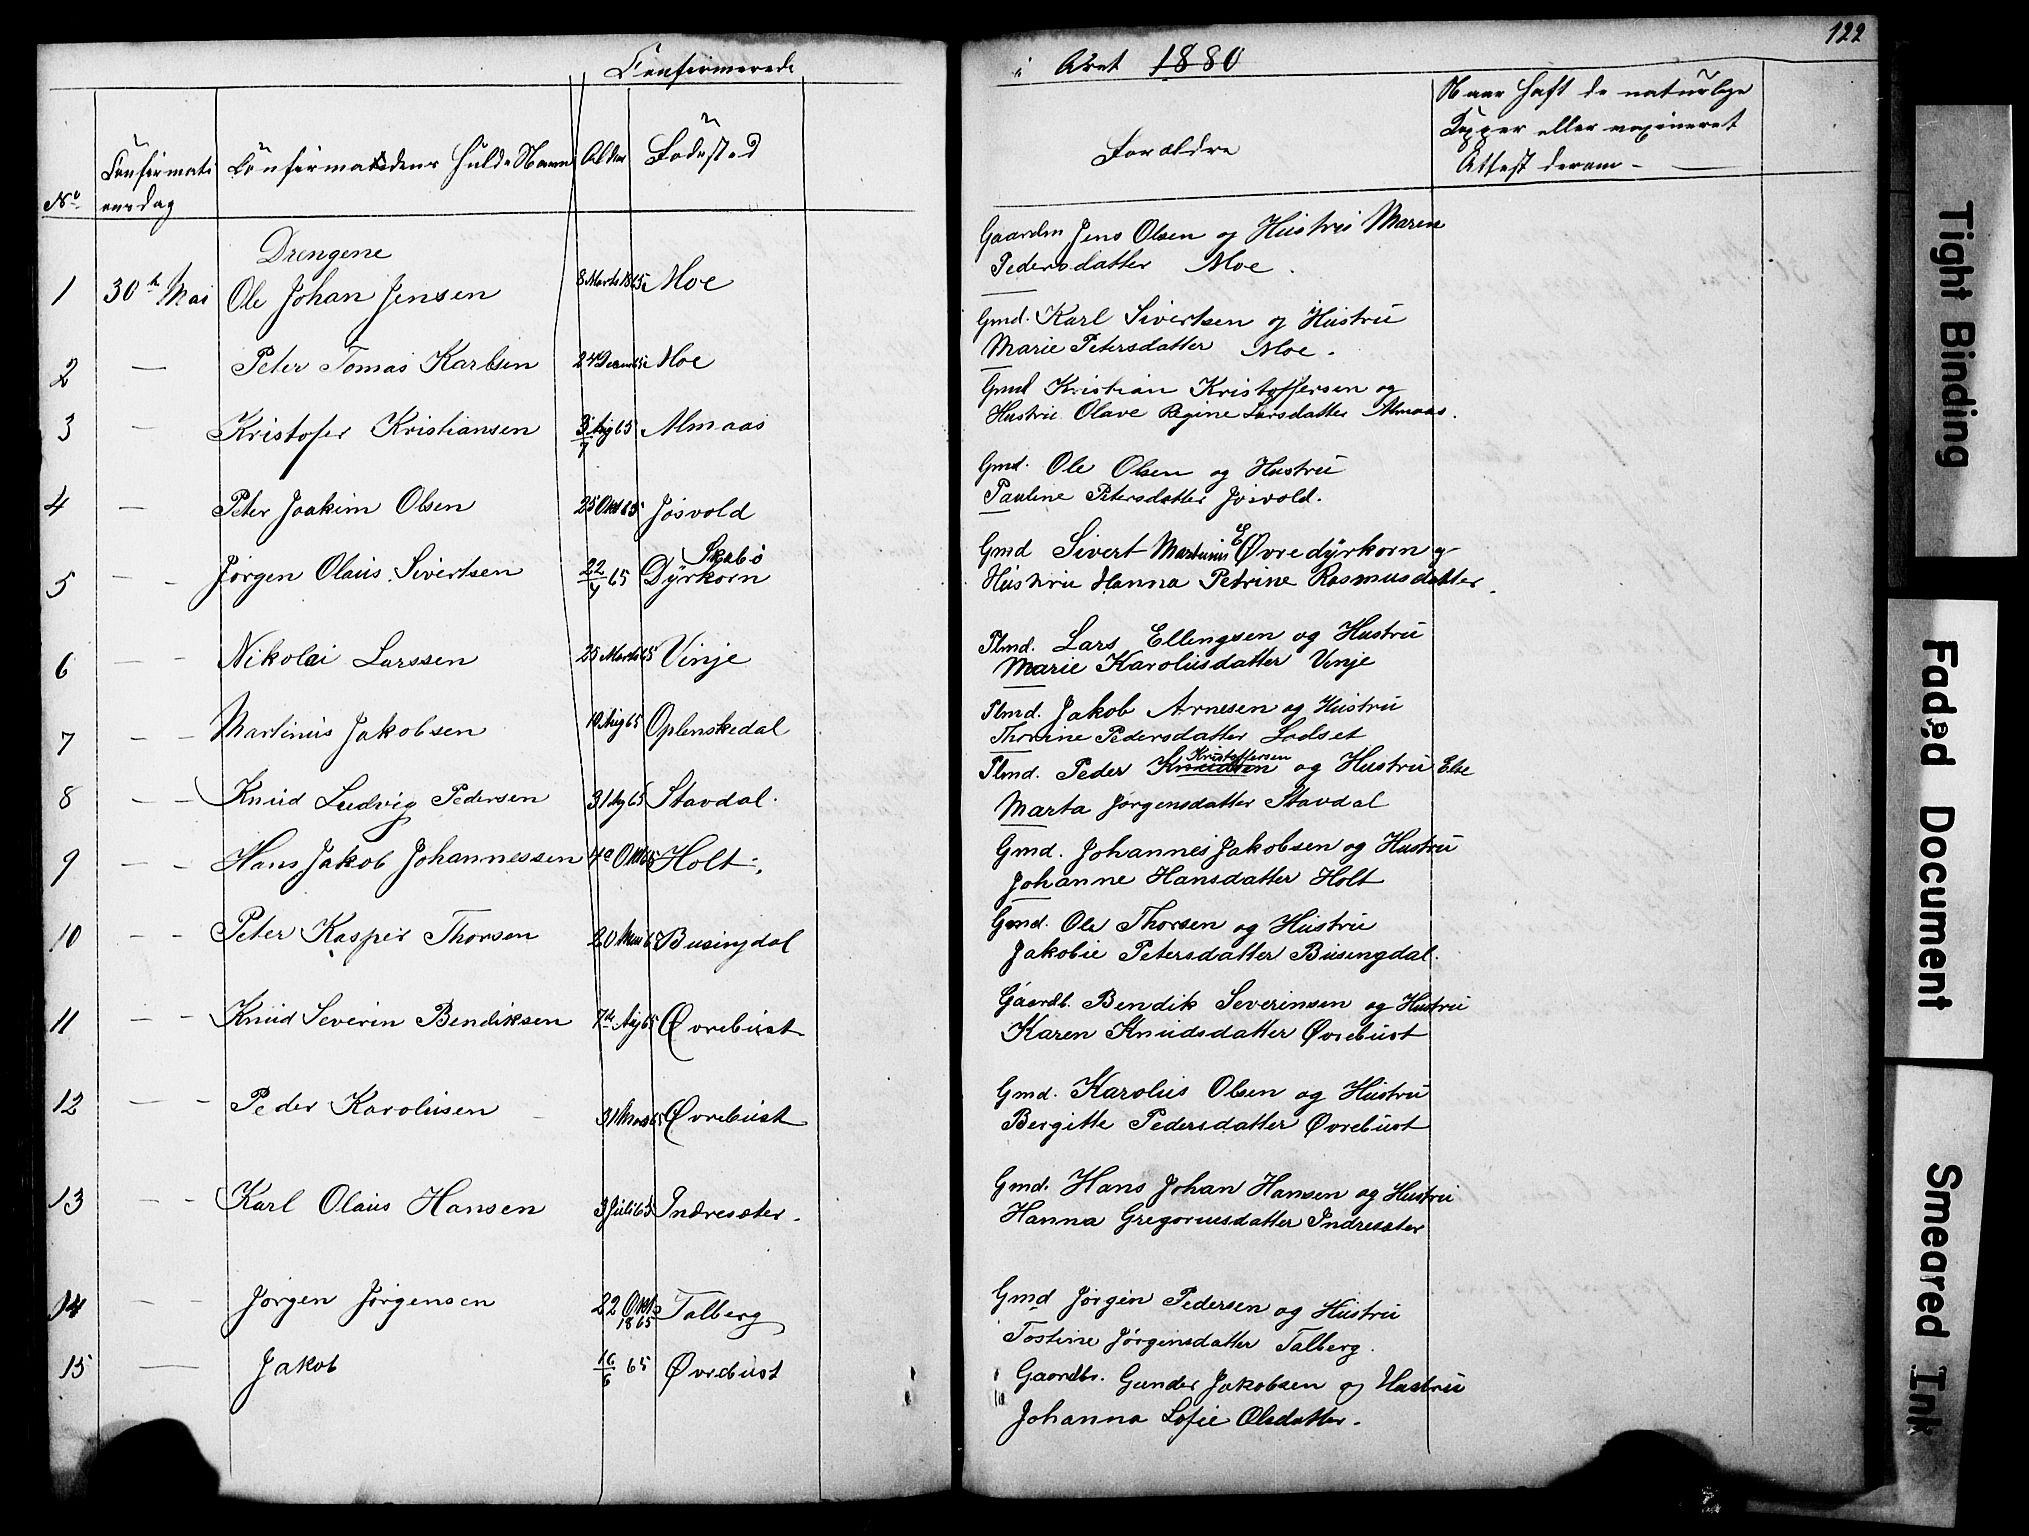 122
Confirmerede
i Aaret 1880
No
Confirmati
onsdag
Confirmandens fulde Navn
Alder
Fødested
Forældre
Naar haft de naturlige
Kopper eller vaxineret
Attest derom -
Drengene
1 30te Mai Ole Johan Jensen 8 Marts 1865 Moe
Gaardm Jens Olsen og Hustru Maren
Pedersdatter Moe.
2 — Peter Tomas Karlsen 24 Decem 65 Moe
Gmd. Karl Sivertsen og Hustru
Marie Petersdatter Moe.
3 — Kristofer Kristiansen Aug 65 Almaas
Gmd Kristian Kristoffersen og
Hustru Olave Regine Larsdatter Almaas.
4 — Peter Joakim Olsen 25 Okt 65 Josvold
Gmd. Ole Olsen og Hustru
Pauline Petersdatter Josvold.
5 — — Jørgen Olaus Sivertsen 22/4 65 Dÿrkorn
Skabø
Gmd Sivert Martinius E Øvredÿrkorn og
Hustru Hanna Petrine Rasmusdatter.
6 — — Nikolai Larssen 25 Marts 65 Vinje
Plmd. Lars Ellingsen og Hustru
Marie Karolusdatter Vinje
7 — — Martinus Jakobsen 10 Aug 65 Oplenskedal
Plmd. Jakob Arnesen og Hustru
Thorine Pedersdatter Lodset
8 — — Knud Ludvig Pedersen 31 Ag 65 Stavdal.
Kristoffersen
Plmd. Peder Knudsen og Hustru Else
Marta Jørgensdatter Stavdal
9 — — Hans Jakob Johannessen 4e Okt 65 Holt
Gmd. Johannes Jakobsen og Hustru
Johanne Hansdatter Holt
10 — — Peter Kasper Thorsen 20 Busingdal
Gmd. Ole Thorsen og Hustru
Jakobie Petersdatter Busingdal.
11 — — Knud Severin Bendiksen 7de Aug 65 Øvrebust
Gaardb. Bendik Severinsen og Hustru
Karen Knudsdatter Øvrebust
12 — — Peder Karolusen 31 Mar 65 Øvrebust
Gmd. Karolus Olsen og Hustru
Bergitte Pedersdatter Øvrebust
13 — — Karl Olaus Hansen 3 Juli 65 Indresæter.
Gmd. Hans Johan Hansen og Hustru
Hanna Gregoriusdatter Indresæter
14 — — Jørgen Jørgensen 22 Okt 1865 Talberg
Gmd Jørgen Pedersen og Hustru
Tostine Jørgensdatter Talberg.
15 — Jakob 16/6 65 Øvrebust
Gaardbr. Gunder Jakobsen og Hustru
Johanna Sofie Olsdatter.
Tight Binding
Faded Document
Smeared Ink